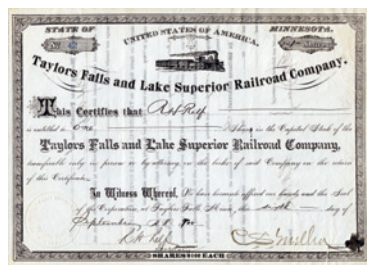 STATE OF
UNITED STATES OF AMERICA.
MINNESOTA.
No
Taylors Falls and Lake Superior Railroad Company.
This Certifies that
is entitled to One Share in the Capital Stock of the
Taylors Falls and Lake Superior Railroad Company,
transferable only in person or by attorney on the books of said Company on the return
of this Certificate.
In Witness Whereof, We have hereunto affixed our hands and the Seal
of the Corporation at Taylors Falls Minn, this day of
September
SHARES $100 EACH